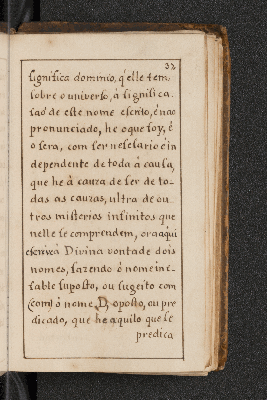 32
significa dominio, q̃ elle tem
sobre o universo, â significa
saõ de este nome escrito, ẽ nao
pronunciado, he o que foy, é
o sera, com ser necesario é in
dependente de toda â causa,
que he â cauza de ser de to-
das as cauzas, ultra de ou
tros misterios infinitos que
nelle se comprendem, ora aqui
escriveâ Divina vontade dois
nomes, fazendo ô nome ine
fable suposto, ou sugeito com
(com) ô nome, D, oposto, ou pre
dicado, que he aquilo que se
predica